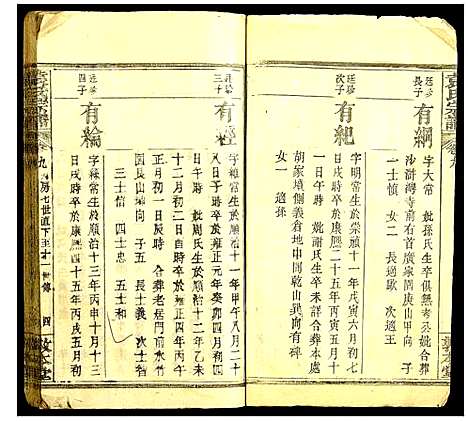 袁氏宗譜
廷論長子
有綱
字大常 妣孫氏生卒俱無考公妣合葬
沙澍灣寺前右首廣家園庚山甲向 子
一士慎 女二 長適歐 次適王
廷論次子
有紀
字明常生於崇禎十一年戊寅六月初七
日戌時卒於康熙二十五年丙寅五月十
一日午時 妣謝氏生卒未詳合葬本處
家塝墳側義倉地中間乾山巽向有碑
女一 適謝
三子
有經
字經常生於順治十一年甲午八月二十
九日辰時卒於雍正元年癸卯四月初四
日 時 妣周氏生於順治十二年乙未
十二月初二日丑時卒於雍正四年丙午
四月二十 日 時 合葬老居門前水圳
艮山坤向 子五 長士義 次士智
三士信 四士忠 五士和
四子
有綸
字綸常生於順治十三年丙申十月十三
日戌時卒於康熙四十五年丙戌五月初
袁氏宗譜 卷九 房七世直下至十一世傳 四 敦本堂